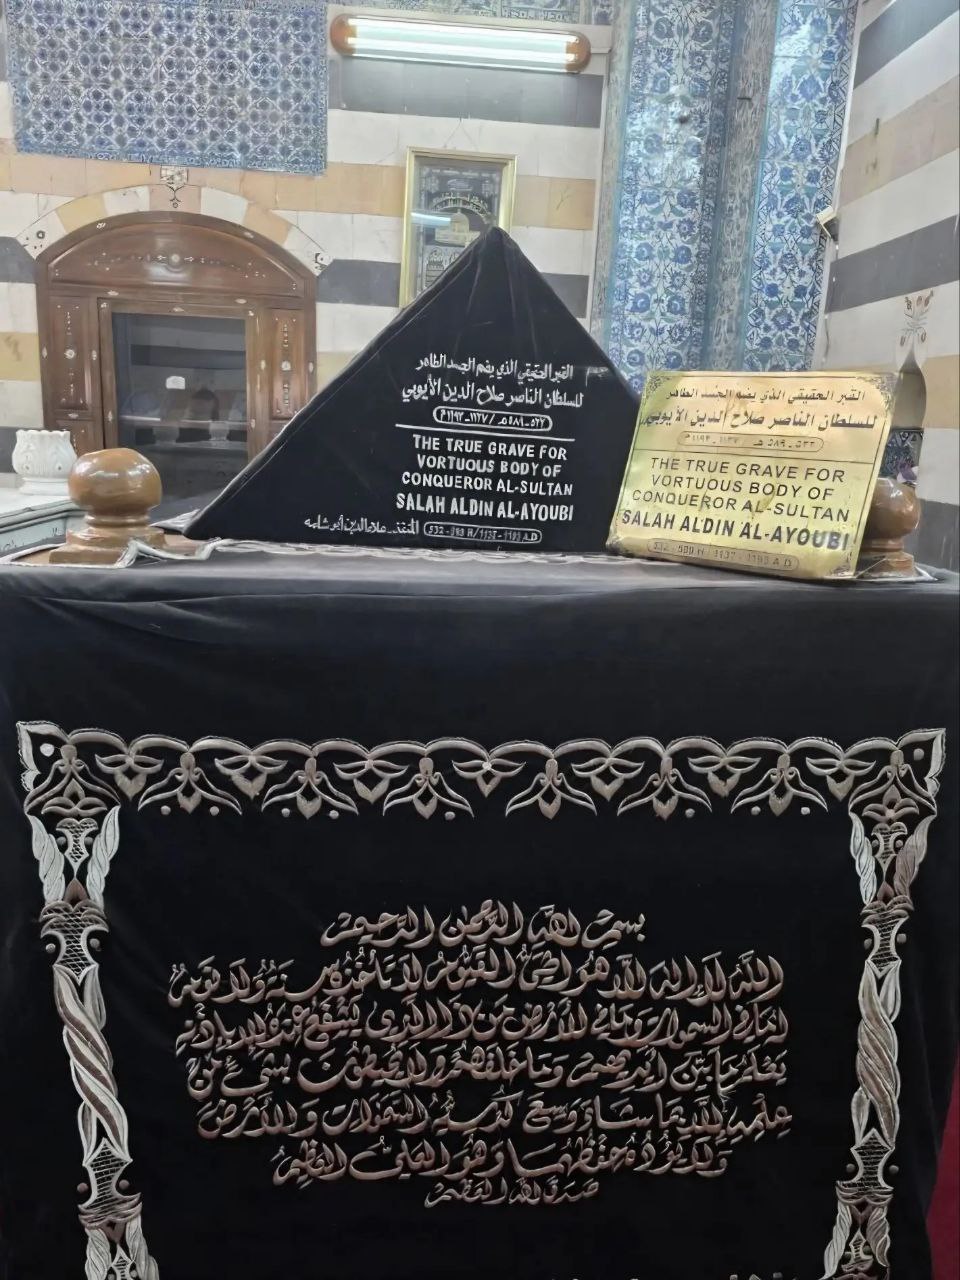 القبر الحقيقي الذي يضم الجسد الطاهر
للسلطان الناصر صلاح الدين الأيوبي
٥٣٢ـ٥٨٩هـ / ١١٣٧ـ١١٩٣م
THE TRUE GRAVE FOR
VORTUOUS BODY OF
CONQUEROR AL-SULTAN
SALAH ALDIN AL-AYOUBI
532-589 H/1137-1193 A.D
المنفذ_علاء الدين أبو شامه
القبر الحقيقي الذي يضم الجسد الطاهر
للسلطان الناصر صلاح الدين الأيوبي
٥٣٢ـ٥٨٩ هـ / ١١٣٧ـ١١٩٣م
THE TRUE GRAVE FOR
VORTUOUS BODY OF
CONQUEROR AL-SULTAN
SALAH AL'DIN AL-AYOUBI
532-589 H/1137-1193 A.D
بسم الله الرحمن الرحيم
الله لا إله إلا هو الحي القيوم لا تأخذه سنة ولا نوم
له ما في السموات وما في الأرض من ذا الذي يشفع عنده إلا بإذنه
يعلم ما بين أيديهم وما خلفهم ولا يحيطون بشيء من
علمه إلا بما شاء وسع كرسيه السموات والأرض
ولا يؤده حفظهما وهو العلي العظيم
صدق الله العظيم